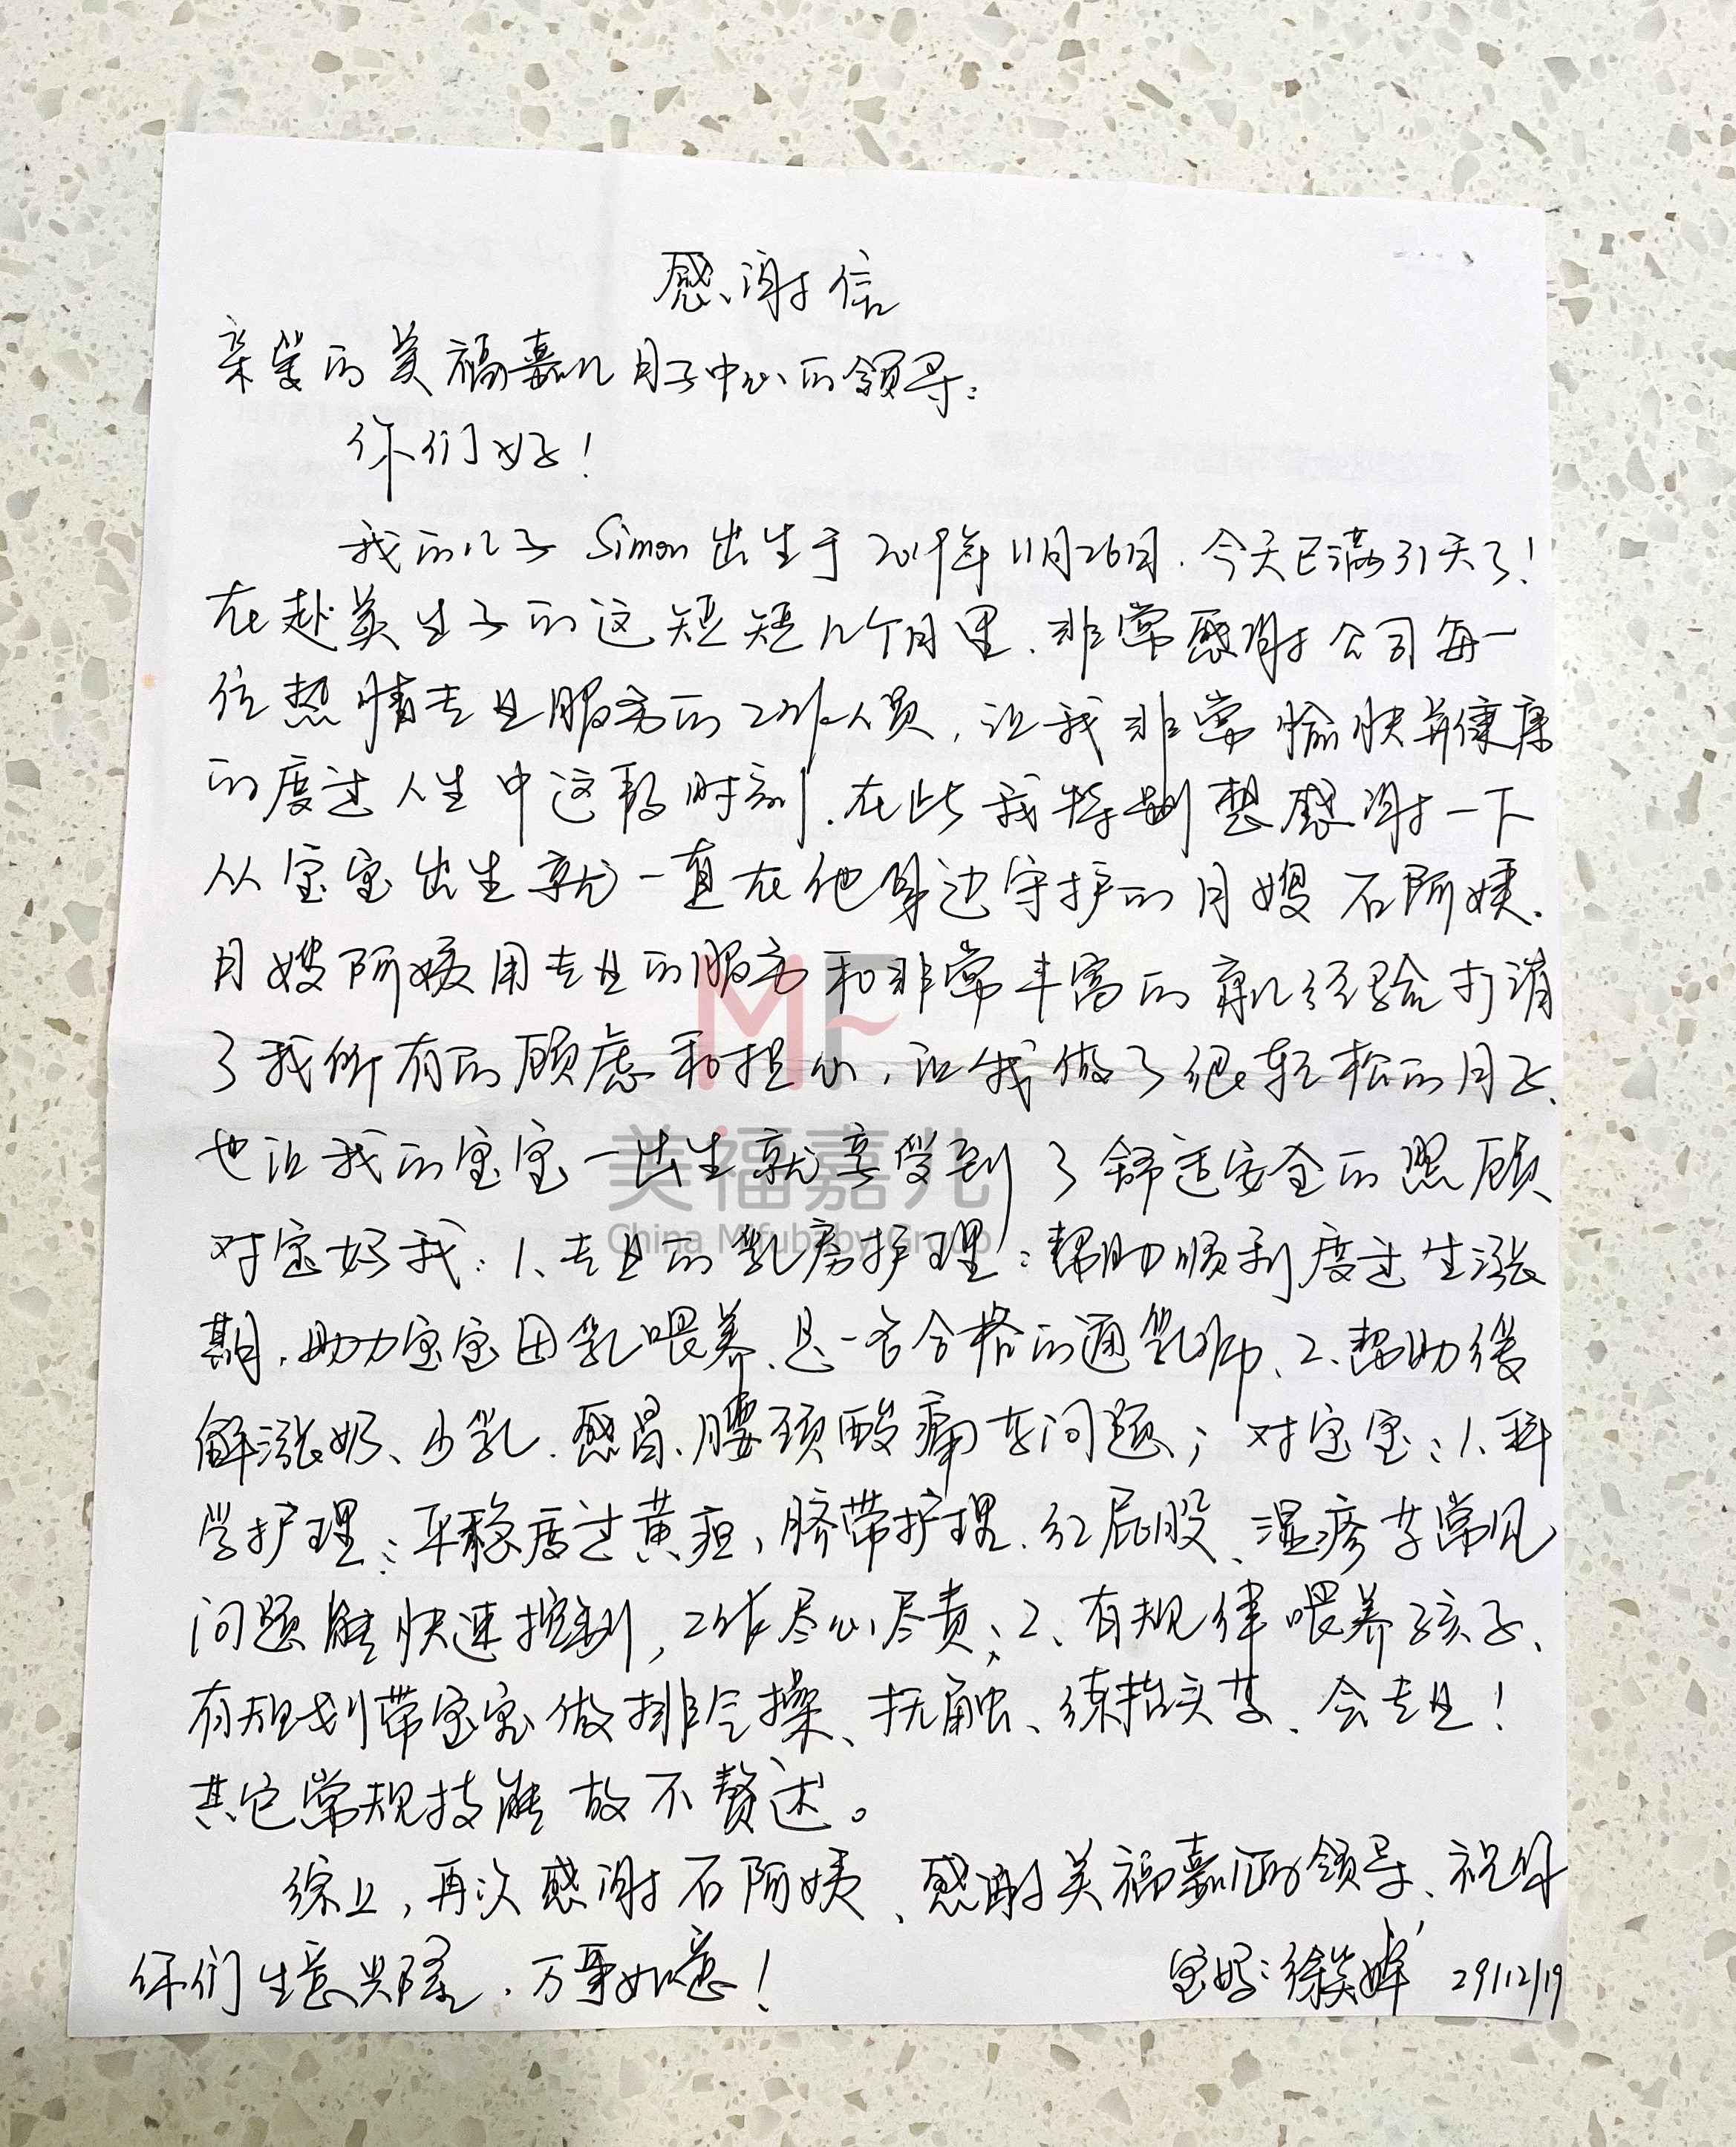 感谢信
亲爱的美福嘉儿月子中心的领导：
你们好！
我的儿子 Simon 出生于2019年11月26日．今天已满31天了！
在赴美生子的这短短几个月里、非常感谢公司每一
位热情专业服务的工作人员，让我非常愉快并健康
的度过人生中这段时刻．在此我特别想感谢一下
从宝宝出生就一直在他身边守护的月嫂石阿姨．
月嫂阿姨用专业的服务和非常丰富的育儿经验打消
了我所有的顾虑和担心，让我做了很轻松的月子、
也让我的宝宝一出生就享受到了舒适安全的照顾
对宝妈我：1、专业的乳房护理：帮助顺利度过生涨
期．助力宝宝母乳喂养、是一名合格的通乳师、2、帮助缓
解涨奶、少乳．感冒、腰颈酸痛等问题；对宝宝：1、科
学护理：平稳度过黄疸、脐带护理．红屁股、湿疹等常见
问题能快速控制，工作尽心尽责；2、有规律喂养孩子、
有规划带宝宝做排气操、抚触、练抬头等、会专业！
其它常规技能故不赘述。
综上，再次感谢石阿姨、感谢美福嘉儿的领导、祝
你们生意兴隆．万事如意！
宝妈：徐 29/12/19
MF
美福嘉儿
China Mifubaby Group